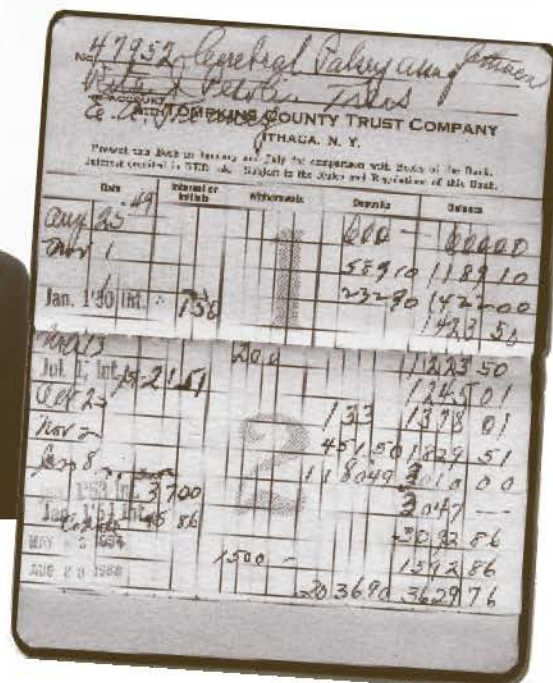 No. 47952 Cerebral Palsy
Treas
ACCOUNT TOMPKINS COUNTY TRUST COMPANY
ITHACA, N. Y.
Present this Book in January and July for comparison with Books of the Bank.
Subject to the Rules and Regulations of this Bank.
Date Interest or Initials Withdrawals Deposits Balance
Aug 25 '49 600 — 600 00
Nov 1 589 10 1189 10
232 90 1422 00
Jan. 1 '50 INT. 1 50 1423 50
200 1223 50
Jul 1 Int 21 51 1245 01
Oct 25 133 1378 01
Nov 2 451 50 1829 51
Jan 8 1180 49 3010 00
Jan. 1 '53 Int. 37 00 3047 —
Jan. 1 '54 Int. 45 86 3092 86
MAY 1954 1500 — 1592 86
AUG 2036 90 3629 76